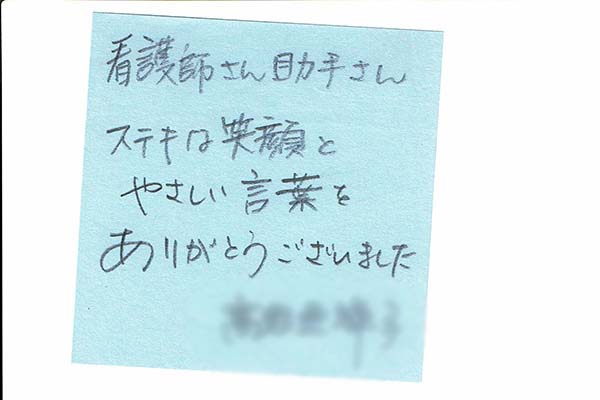 看護師さん助手さん
ステキな笑顔と
やさしい言葉を
ありがとうございました